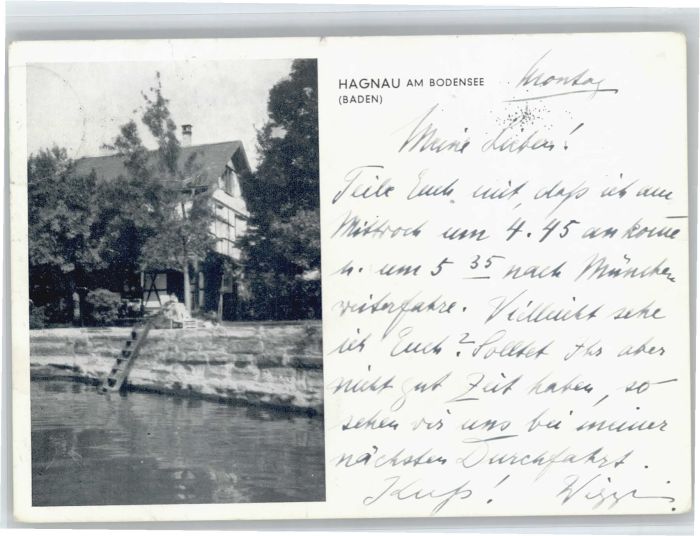 HAGNAU AM BODENSEE
(BADEN)
Montag
Meine Lieben!
Teile Euch mit, daß ich am
Mittwoch um 4.45 ankome
u. um 5 35 nach München
weiterfahre. Vielleicht sehe
ich Euch? Solltet Ihr aber
nicht gut Zeit haben, so
sehen wir uns bei meiner
nächsten Durchfahrt.
Kuß!